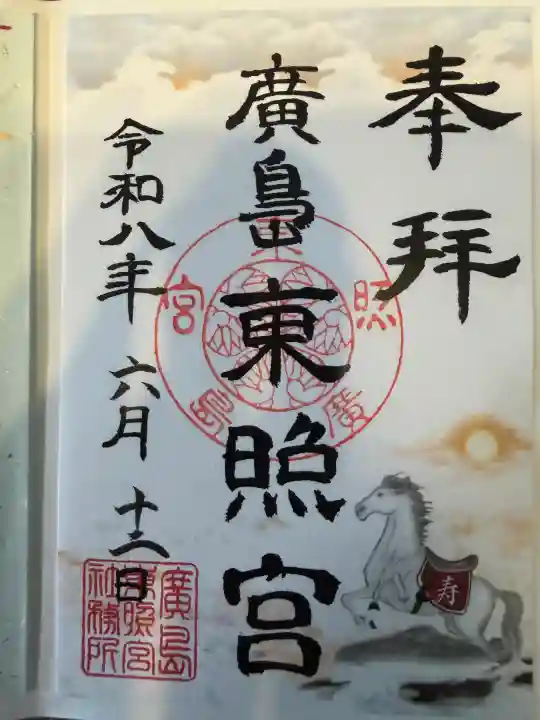 奉拝
廣島東照宮
令和八年 六月 十二日
東照宮廣島
廣島
東照宮
社務所
寿